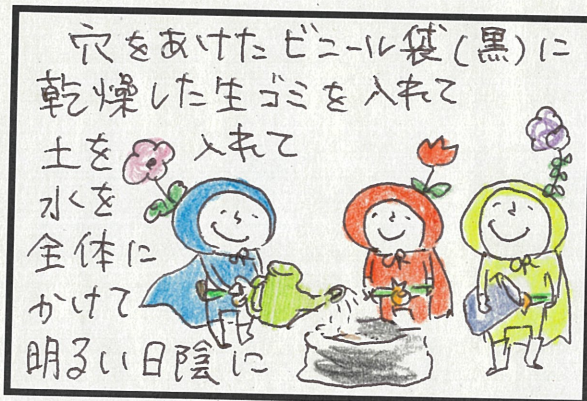 穴をあけたビニール袋(黒)に
乾燥した生ゴミを入れて
土を入れて
水を
全体に
かけて
明るい日陰に